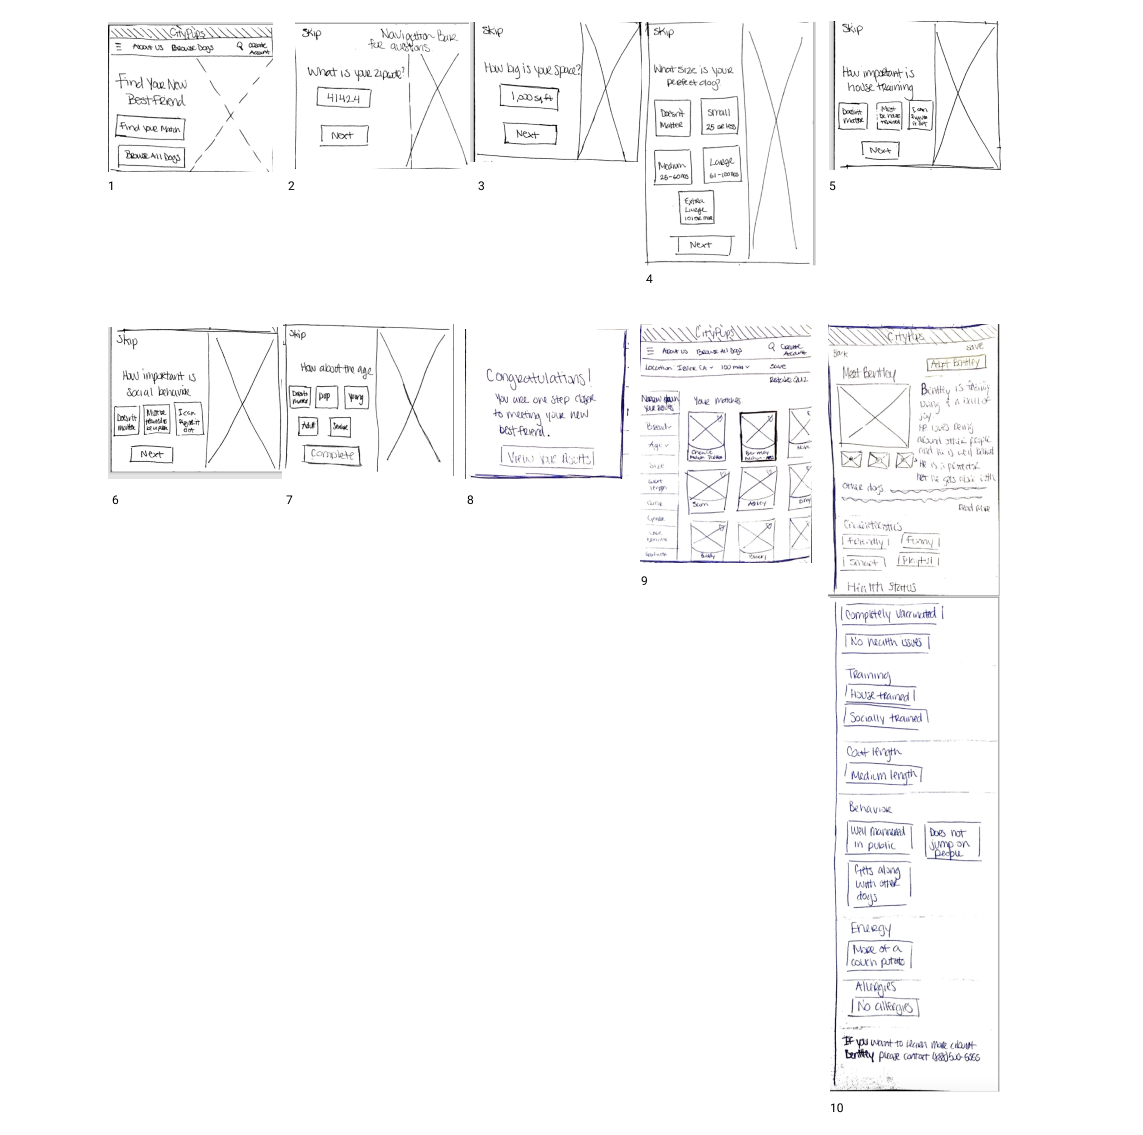 CityPups
☰ About Us Browse Dogs Create
Account
Find Your New
Best Friend
Find your Match
Browse All Dogs
1
Skip
Navigation Bar
for questions
What is your zipcode?
41424
Next
2
Skip
How big is your space?
1,000 sq ft
Next
3
Skip
What size is your
perfect dog?
Doesn't
Matter
Small
25 or less
Medium
Large
61-100 lbs
Extra
Large
Next
4
Skip
How important is
house training
Doesn't
Matter
Must
be house
trained
I can
Next
5
Skip
How important is
social behavior
Doesn't
matter
I can
out
Next
6
Skip
How about the age
Doesn't
matter
pup
young
Adult
Senior
Complete
7
Congratulations!
You are one step closer
to meeting your new
best friend.
View your Results
8
CityPups
☰ About Us Browse All Dogs Create
Account
Location: CA 100 miles Save
Retake Quiz
Narrow down
your results
Your matches
Breed
Age
Size
Coat
length
Gender
Bentley
Ashley
Buddy
9
CityPups
Back
Save
Adopt Bentley
Meet Bentley
Bentley is
joy.
He loves being
around other people
and he is well
He is a
other dogs
Read more
Characteristics
Friendly
Funny
Smart
Playful
Health Status
Completely vaccinated
No health issues
Training
House trained
Socially trained
Coat length
Medium length
Behavior
Well mannered
in public
Does not
jump on
people
Gets along
with other
dogs
Energy
More of a
couch potato
Allergies
No allergies
If you want to learn more about
Bentley please contact
10